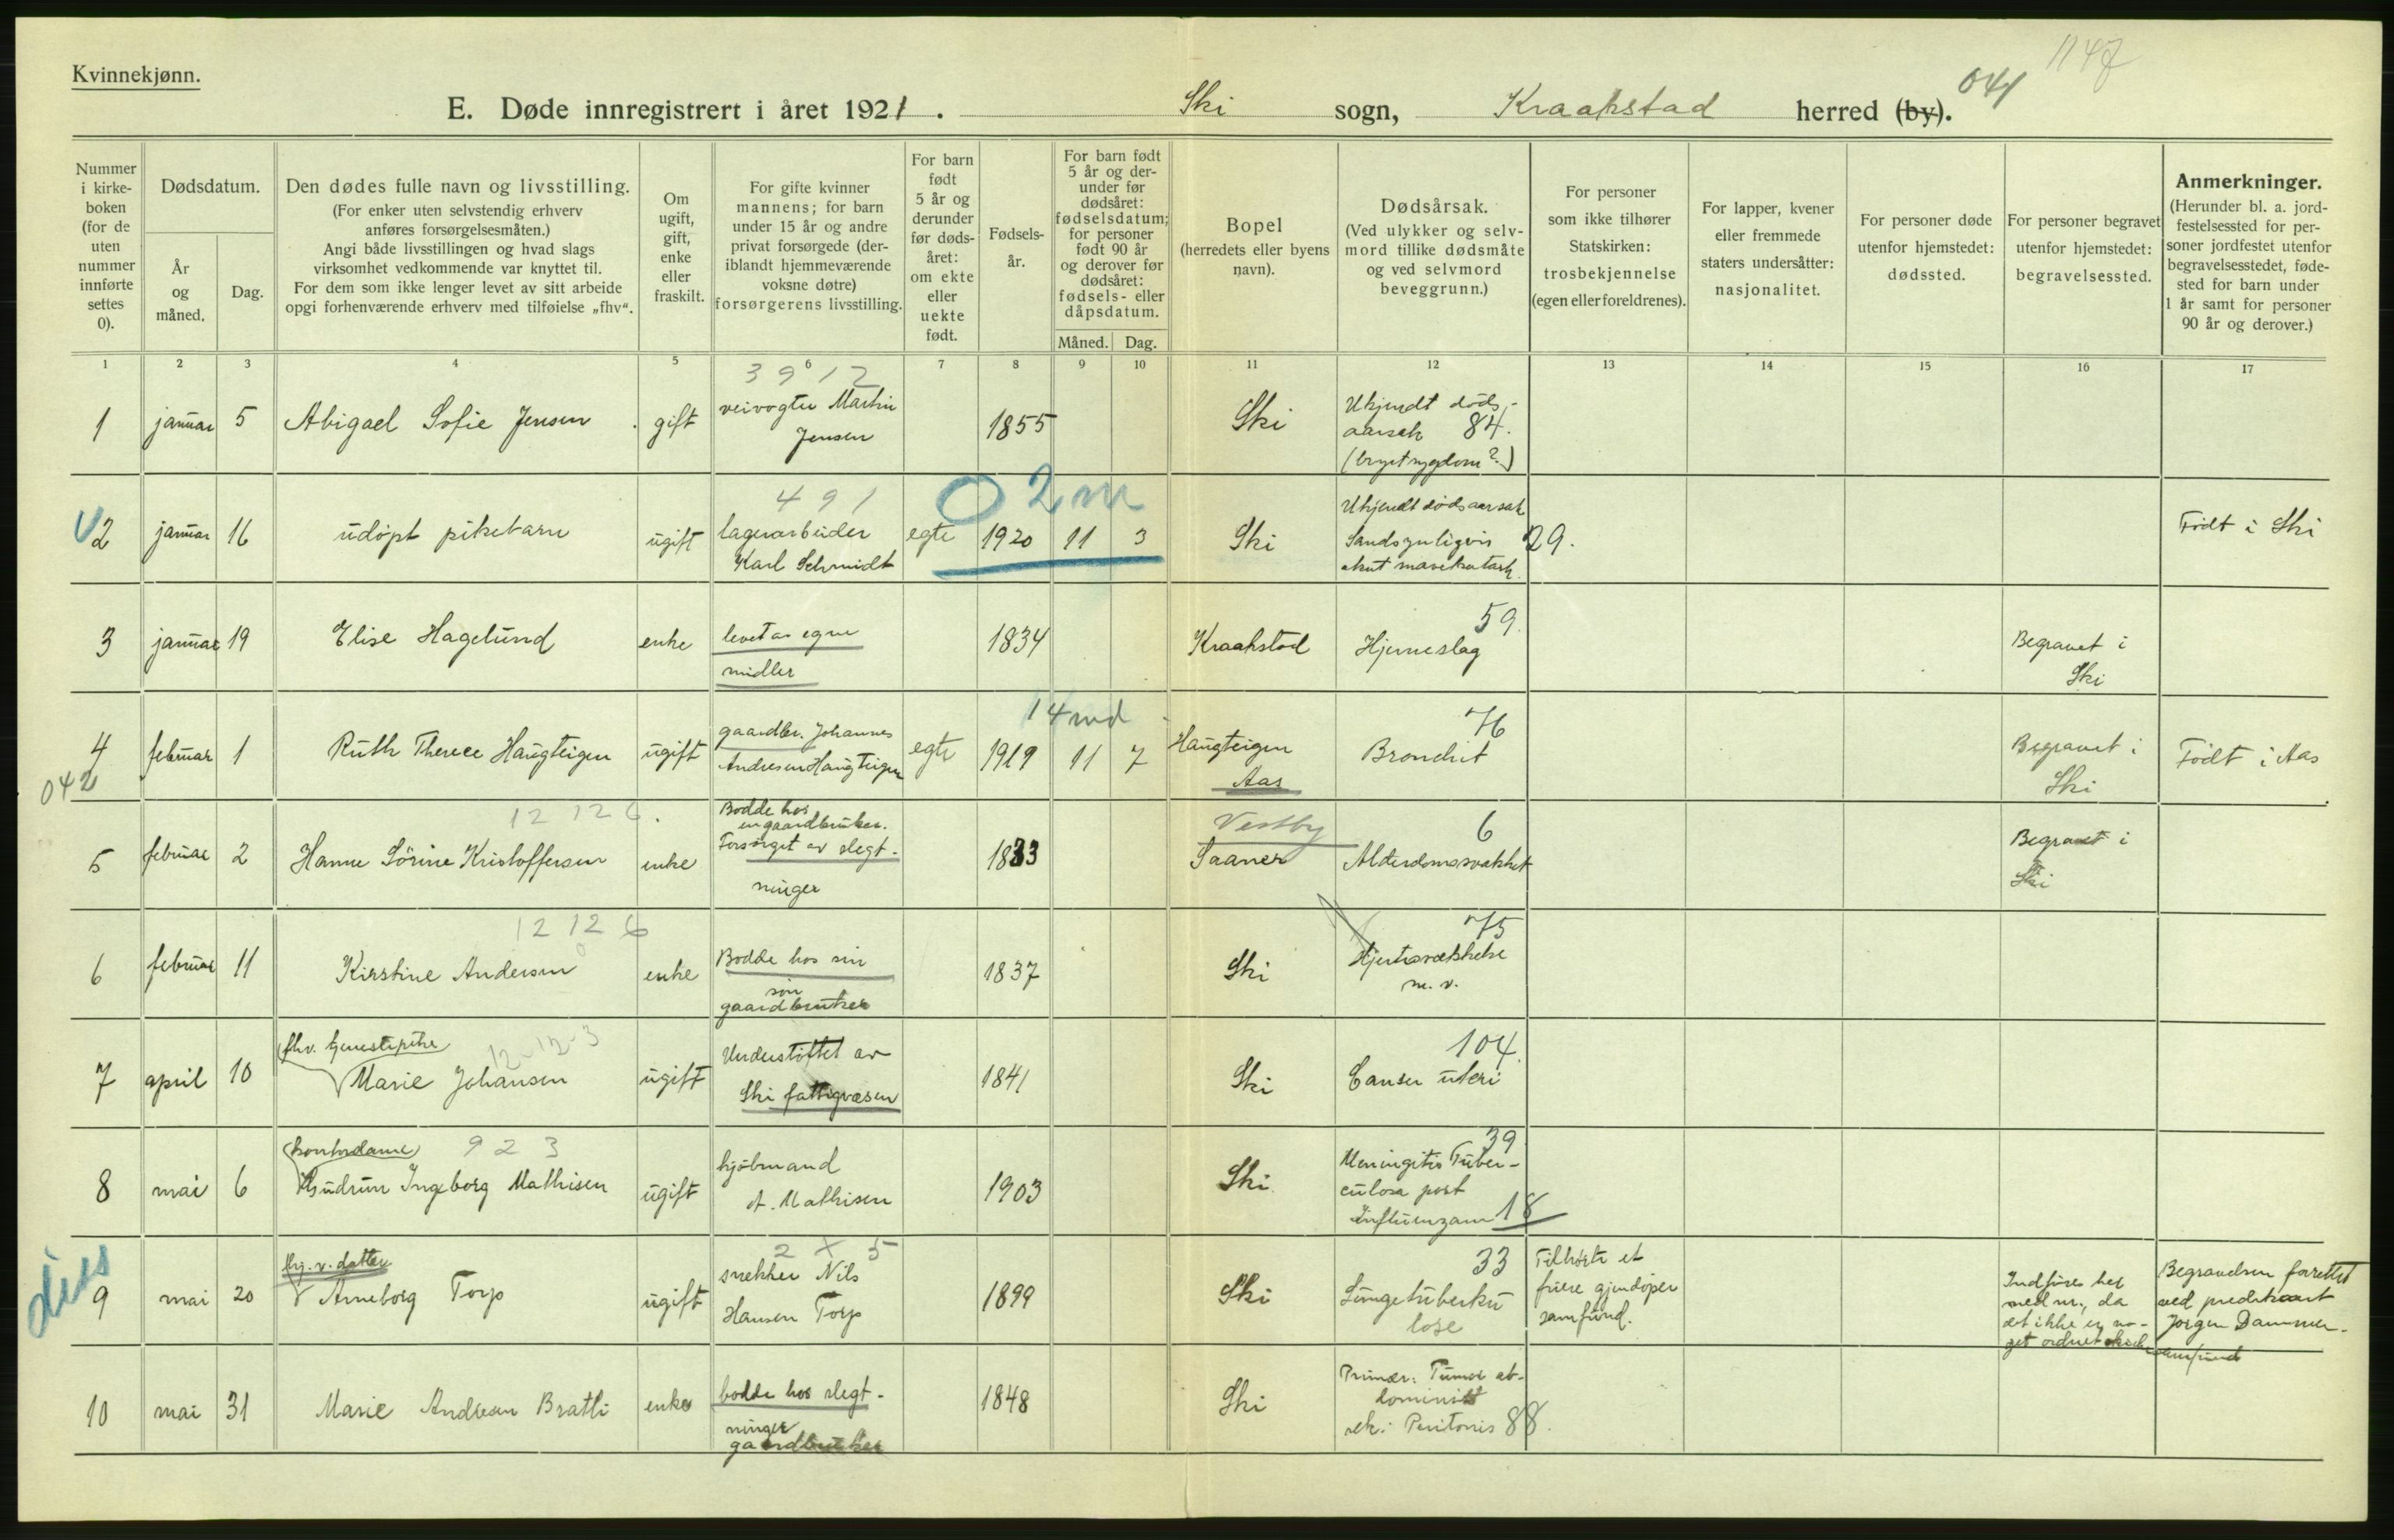 Kvinnekjønn.
1147
041
E. Døde innregistrert i året 1921. Ski sogn, Kraakstad herred (by).
Nummer i kirkeboken (for de uten nummer innførte settes 0).
Dødsdatum.
År og måned.
Dag.
Den dødes fulle navn og livsstilling.
(For enker uten selvstendig erhverv anføres forsørgelsesmåten.)
Angi både livsstillingen og hvad slags virksomhet vedkommende var knyttet til.
For dem som ikke lenger levet av sitt arbeide opgi forhenværende erhverv med tilføielse „fhv“.
Om ugift, gift, enke eller fraskilt.
For gifte kvinner mannens; for barn under 15 år og andre privat forsørgede (deriblandt hjemmeværende voksne døtre) forsørgerens livsstilling.
For barn født 5 år og derunder før dødsåret: om ekte eller uekte født.
Fødselsår.
For barn født 5 år og derunder før dødsåret: fødselsdatum; for personer født 90 år og derover før dødsåret: fødsels- eller dåpsdatum.
Måned. Dag.
Bopel
(herredets eller byens navn).
Dødsårsak.
(Ved ulykker og selvmord tillike dødsmåte og ved selvmord beveggrunn.)
For personer som ikke tilhører Statskirken: trosbekjennelse (egen eller foreldrenes).
For lapper, kvener eller fremmede staters undersåtter: nasjonalitet.
For personer døde utenfor hjemstedet: dødssted.
For personer begravet utenfor hjemstedet: begravelsessted.
Anmerkninger.
(Herunder bl. a. jordfestelsessted for personer jordfestet utenfor begravelsesstedet, fødested for barn under 1 år samt for personer 90 år og derover.)
1 2 3 4 5 6 7 8 9 10 11 12 13 14 15 16 17
3912
1 januar 5 Abigael Sofie Jensen gift veivogter Martin Jensen 1855 Ski Ukjendt dødsaarsak 84. (brystsygdom?)
491
0 2 m
2 januar 16 udöpt pikebarn ugift lagerarbeider Karl Schmidt egte 1920 11 3 Ski Ukjendt dødsaarsak Sandsynligvis akut mavekatarh 29. Födt i Ski
3 januar 19 Elise Hagelund enke levet av egne midler 1834 Kraakstad Hjerneslag 59. Begravet i Ski
14 md
4 februar 1 Ruth Therece Haugteigen ugift gaardbr. Johannes Andresen Haugteigen egte 1919 11 7 Haugteigen Aas Bronchit 76 Begravet i Ski Födt i Aas
042
12 126.
5 februar 2 Hanne Sörine Kristoffersen enke Bodde hos en gaardbruker. Forsörget av slegtninger 1833 Vestby Saaner Alderdomssvakhet 6 Begravet i Ski
12 12 6
6 februar 11 Kirstine Andersen enke Bodde hos sin sön gaardbruker 1837 Ski Hjertesvækkelse m. v. 75
12-12-3
7 april 10 fhv. tjenestepike Marie Johansen ugift Understöttet av Ski fattigvæsen 1841 Ski Cancer uteri 104.
923
8 mai 6 kontordame Gudrun Ingeborg Mathisen ugift kjöbmand A. Mathisen 1903 Ski Meningitis Tuberculosa post Influenzam 39 18
diss
2 X 5
9 mai 20 hj.v. datter Arneborg Torp ugift snekker Nils Hansen Torp 1899 Ski Lungetuberkulose 33 Tilhörte et friere gjendöper samfund. Indföres her med nr., da det ikke er noget ordnet samfund Begravelsen forrettet ved predikant Jörgen Dammen.
10 mai 31 Marie Andresen Bratli enke bodde hos slegtninger gaardbruker 1848 Ski Primær: Tumor abdominis sek: Peritonis 88.